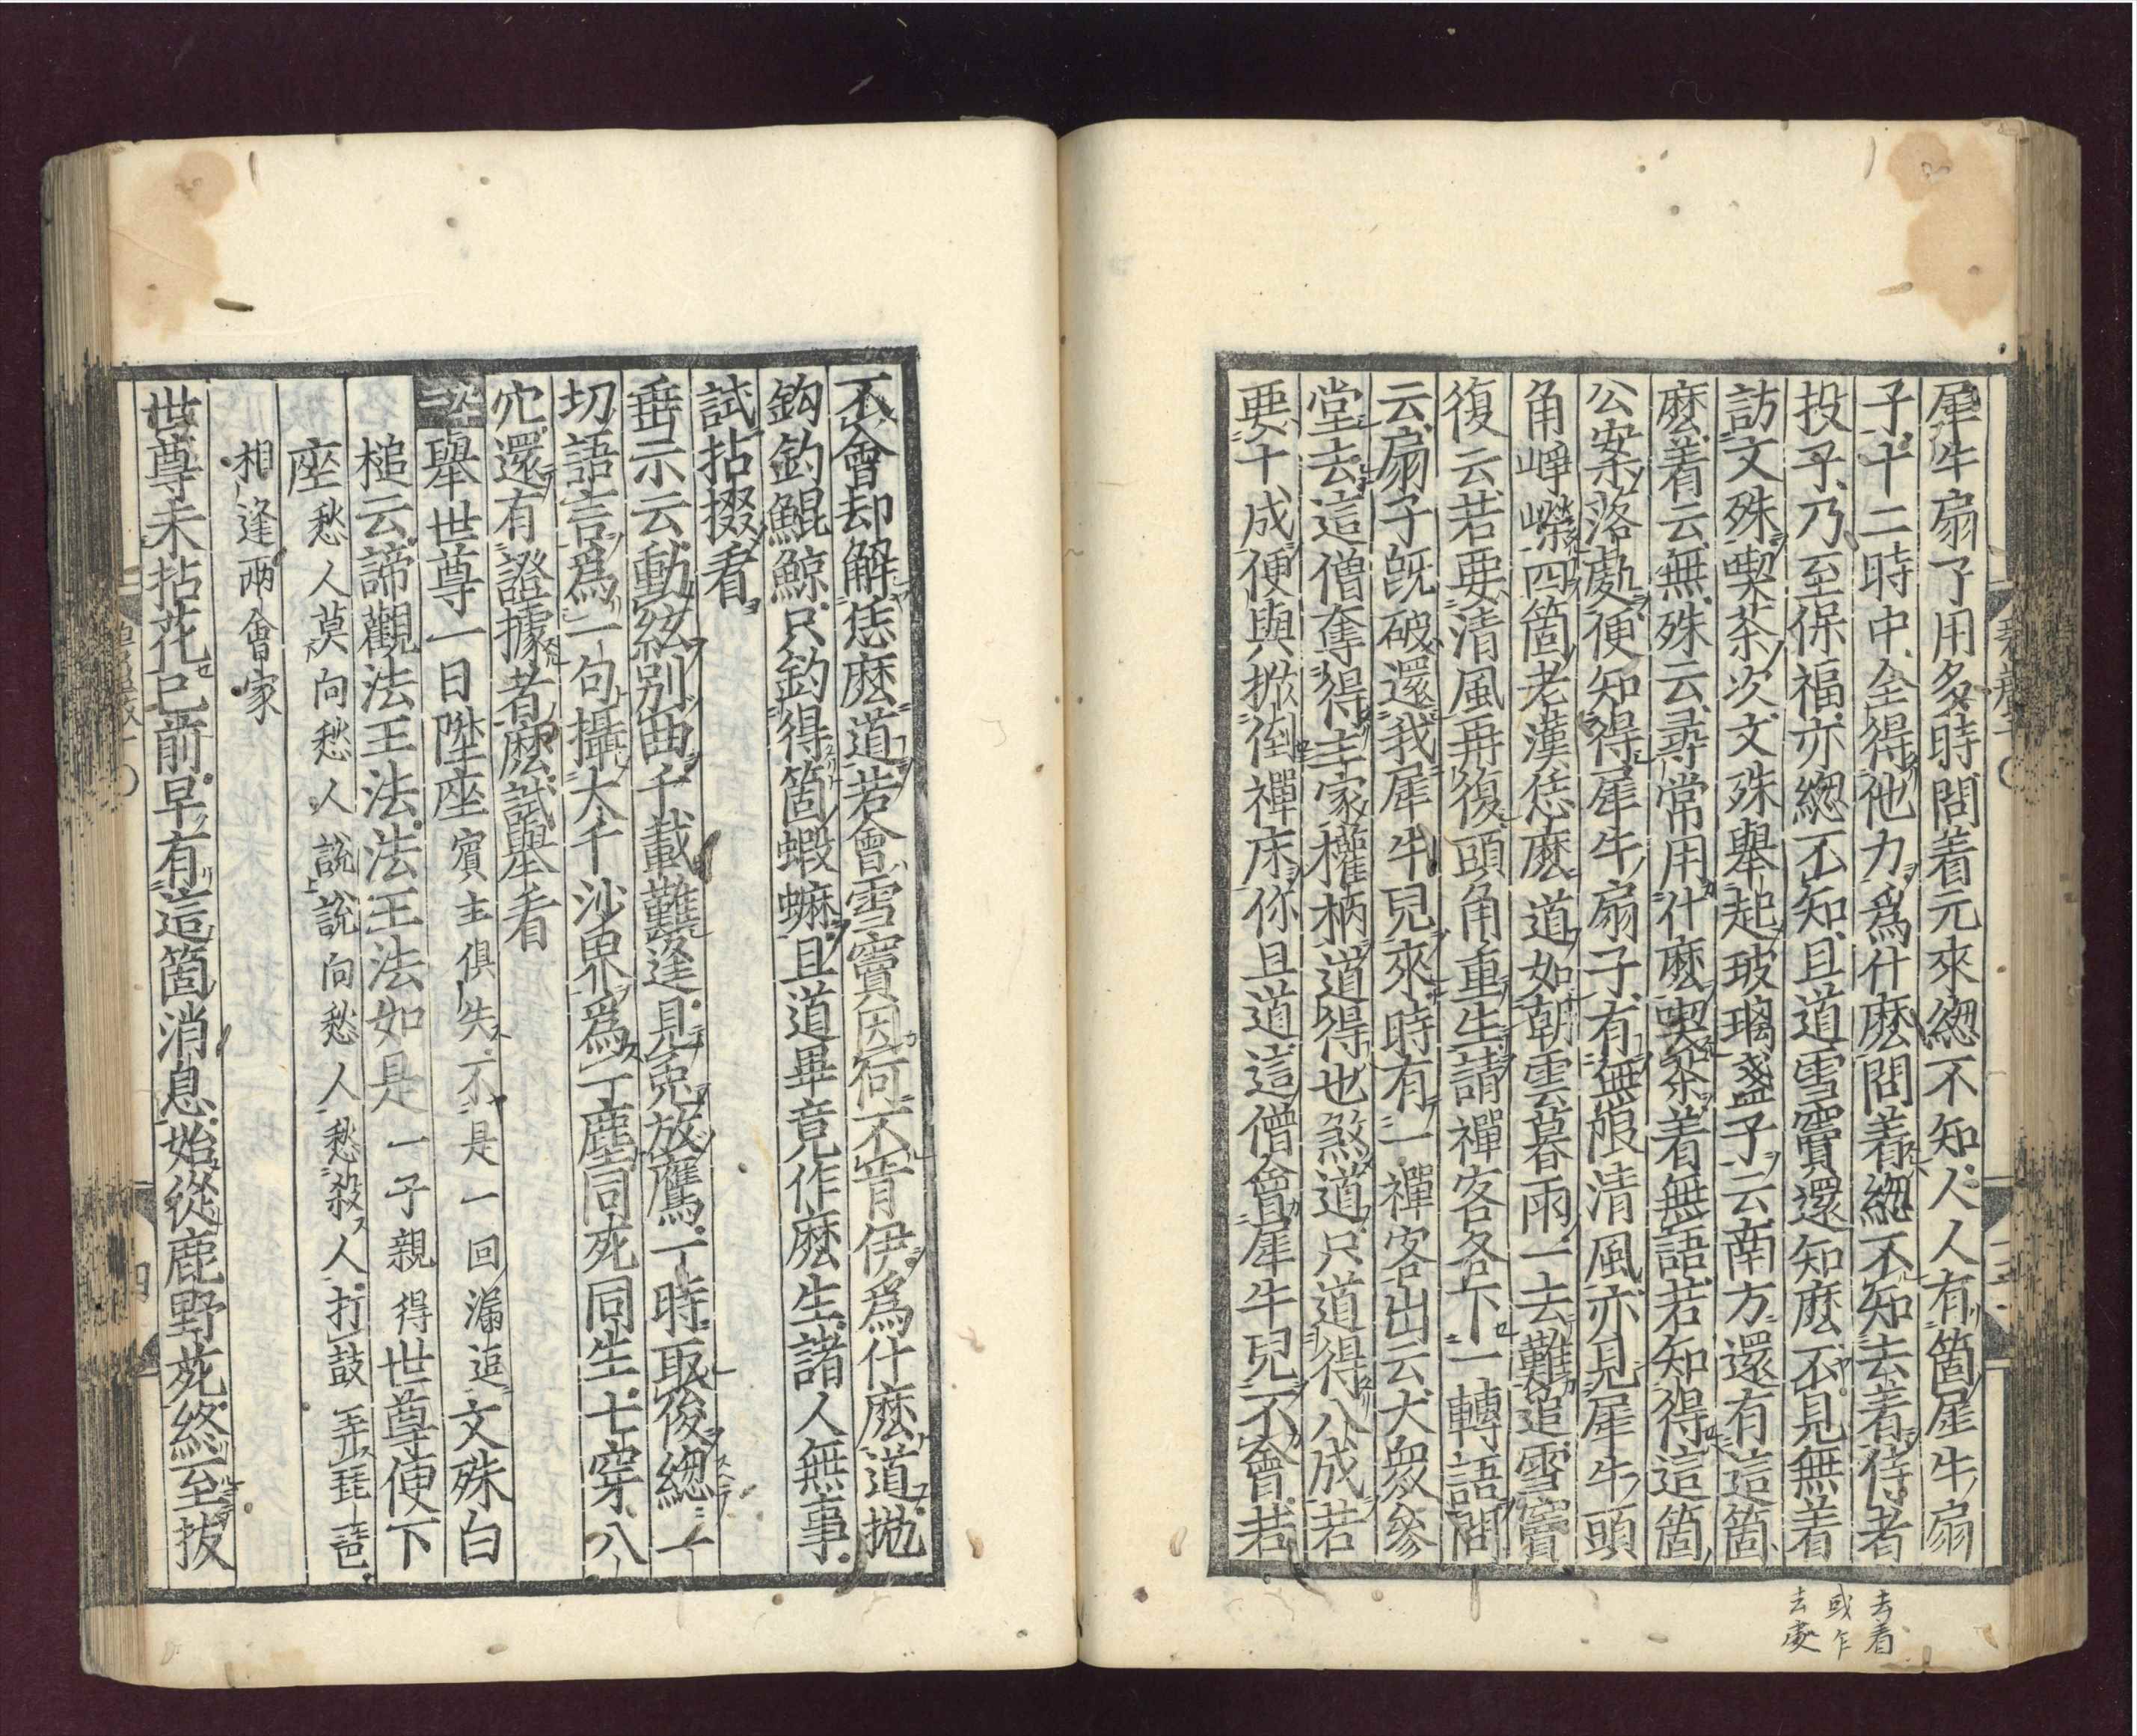 犀牛扇子用多時問着元來緫不知人人有箇犀牛扇
子十二時中全得他力爲什麽問着緫不知去着侍者
投子乃至保福亦緫不知且道雪竇還知麽不見無着
訪文殊喫茶次文殊舉起玻瓈盞子云南方還有這箇
麽着云無殊云尋常用什麽喫茶着無語若知得這箇
公案落處便知得犀牛扇子有無限清風亦見犀牛頭
角崢嶸四箇老漢恁麽道如朝雲暮雨一去難追雪竇
復云若要清風再復頭角重生請禪客各下一轉語問
云扇子旣破還我犀牛兒來時有一禪客出云大衆參
堂去這僧奪得主家權柄道得也煞道只道得八成若
要十成便與掀倒禪床你且道這僧會犀牛兒不會若
去着
或乍
去處
不會却解恁麽道若會雪竇因何不肯伊爲什麽道抛
鈎釣鯤鯨只釣得箇蝦蟆且道畢竟作麽生諸人無事
試拈掇看
垂示云動絃別曲千載難逢見兎放鷹一時取俊緫一
切語言爲一句攝大千沙界爲一塵同死同生七穿八
穴還有證據者麽試舉看
舉世尊一日陞座賓主俱失不是一回漏逗文殊白
槌云諦觀法王法法王法如是一子親得世尊便下
座愁人莫向愁人說說向愁人愁殺人打鼓弄琵琶
相逢兩會家
世尊未拈花已前早有這箇消息始從鹿野苑終至拔